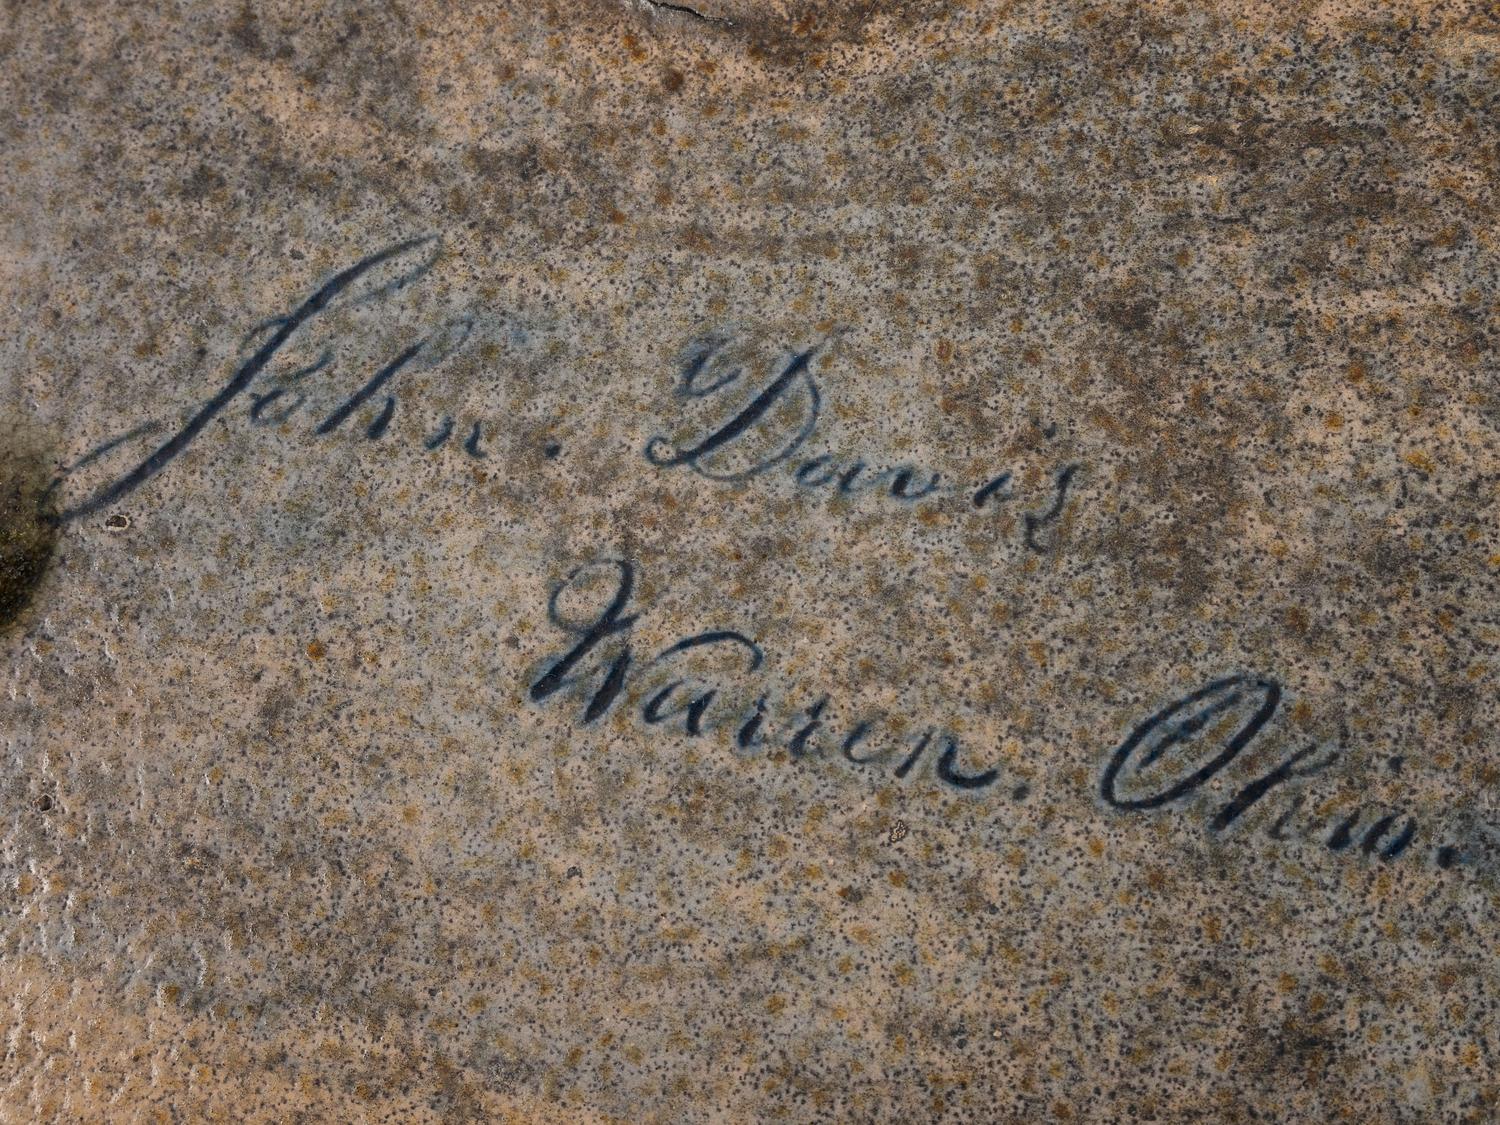 John. Davis
Warren. Ohio.